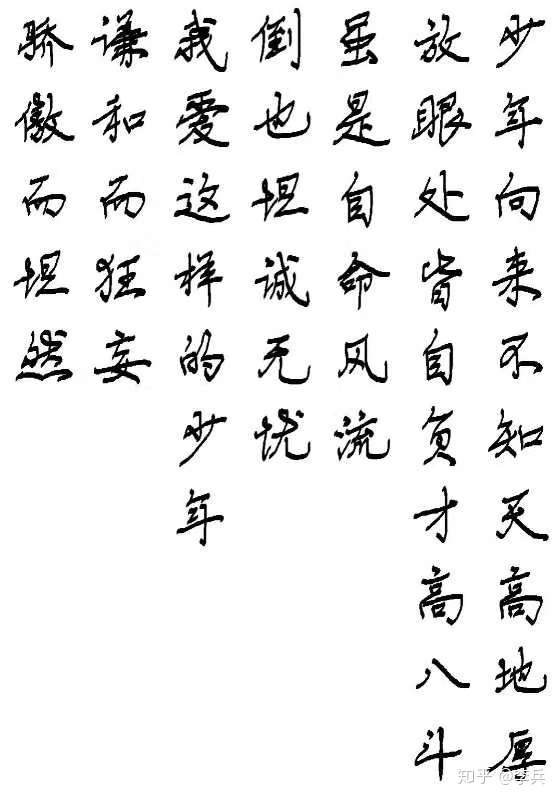 少年向来不知天高地厚
放眼处皆自负才高八斗
虽是自命风流
倒也坦诚无忧
我爱这样的少年
谦和而狂妄
骄傲而坦然
知乎 @李兵